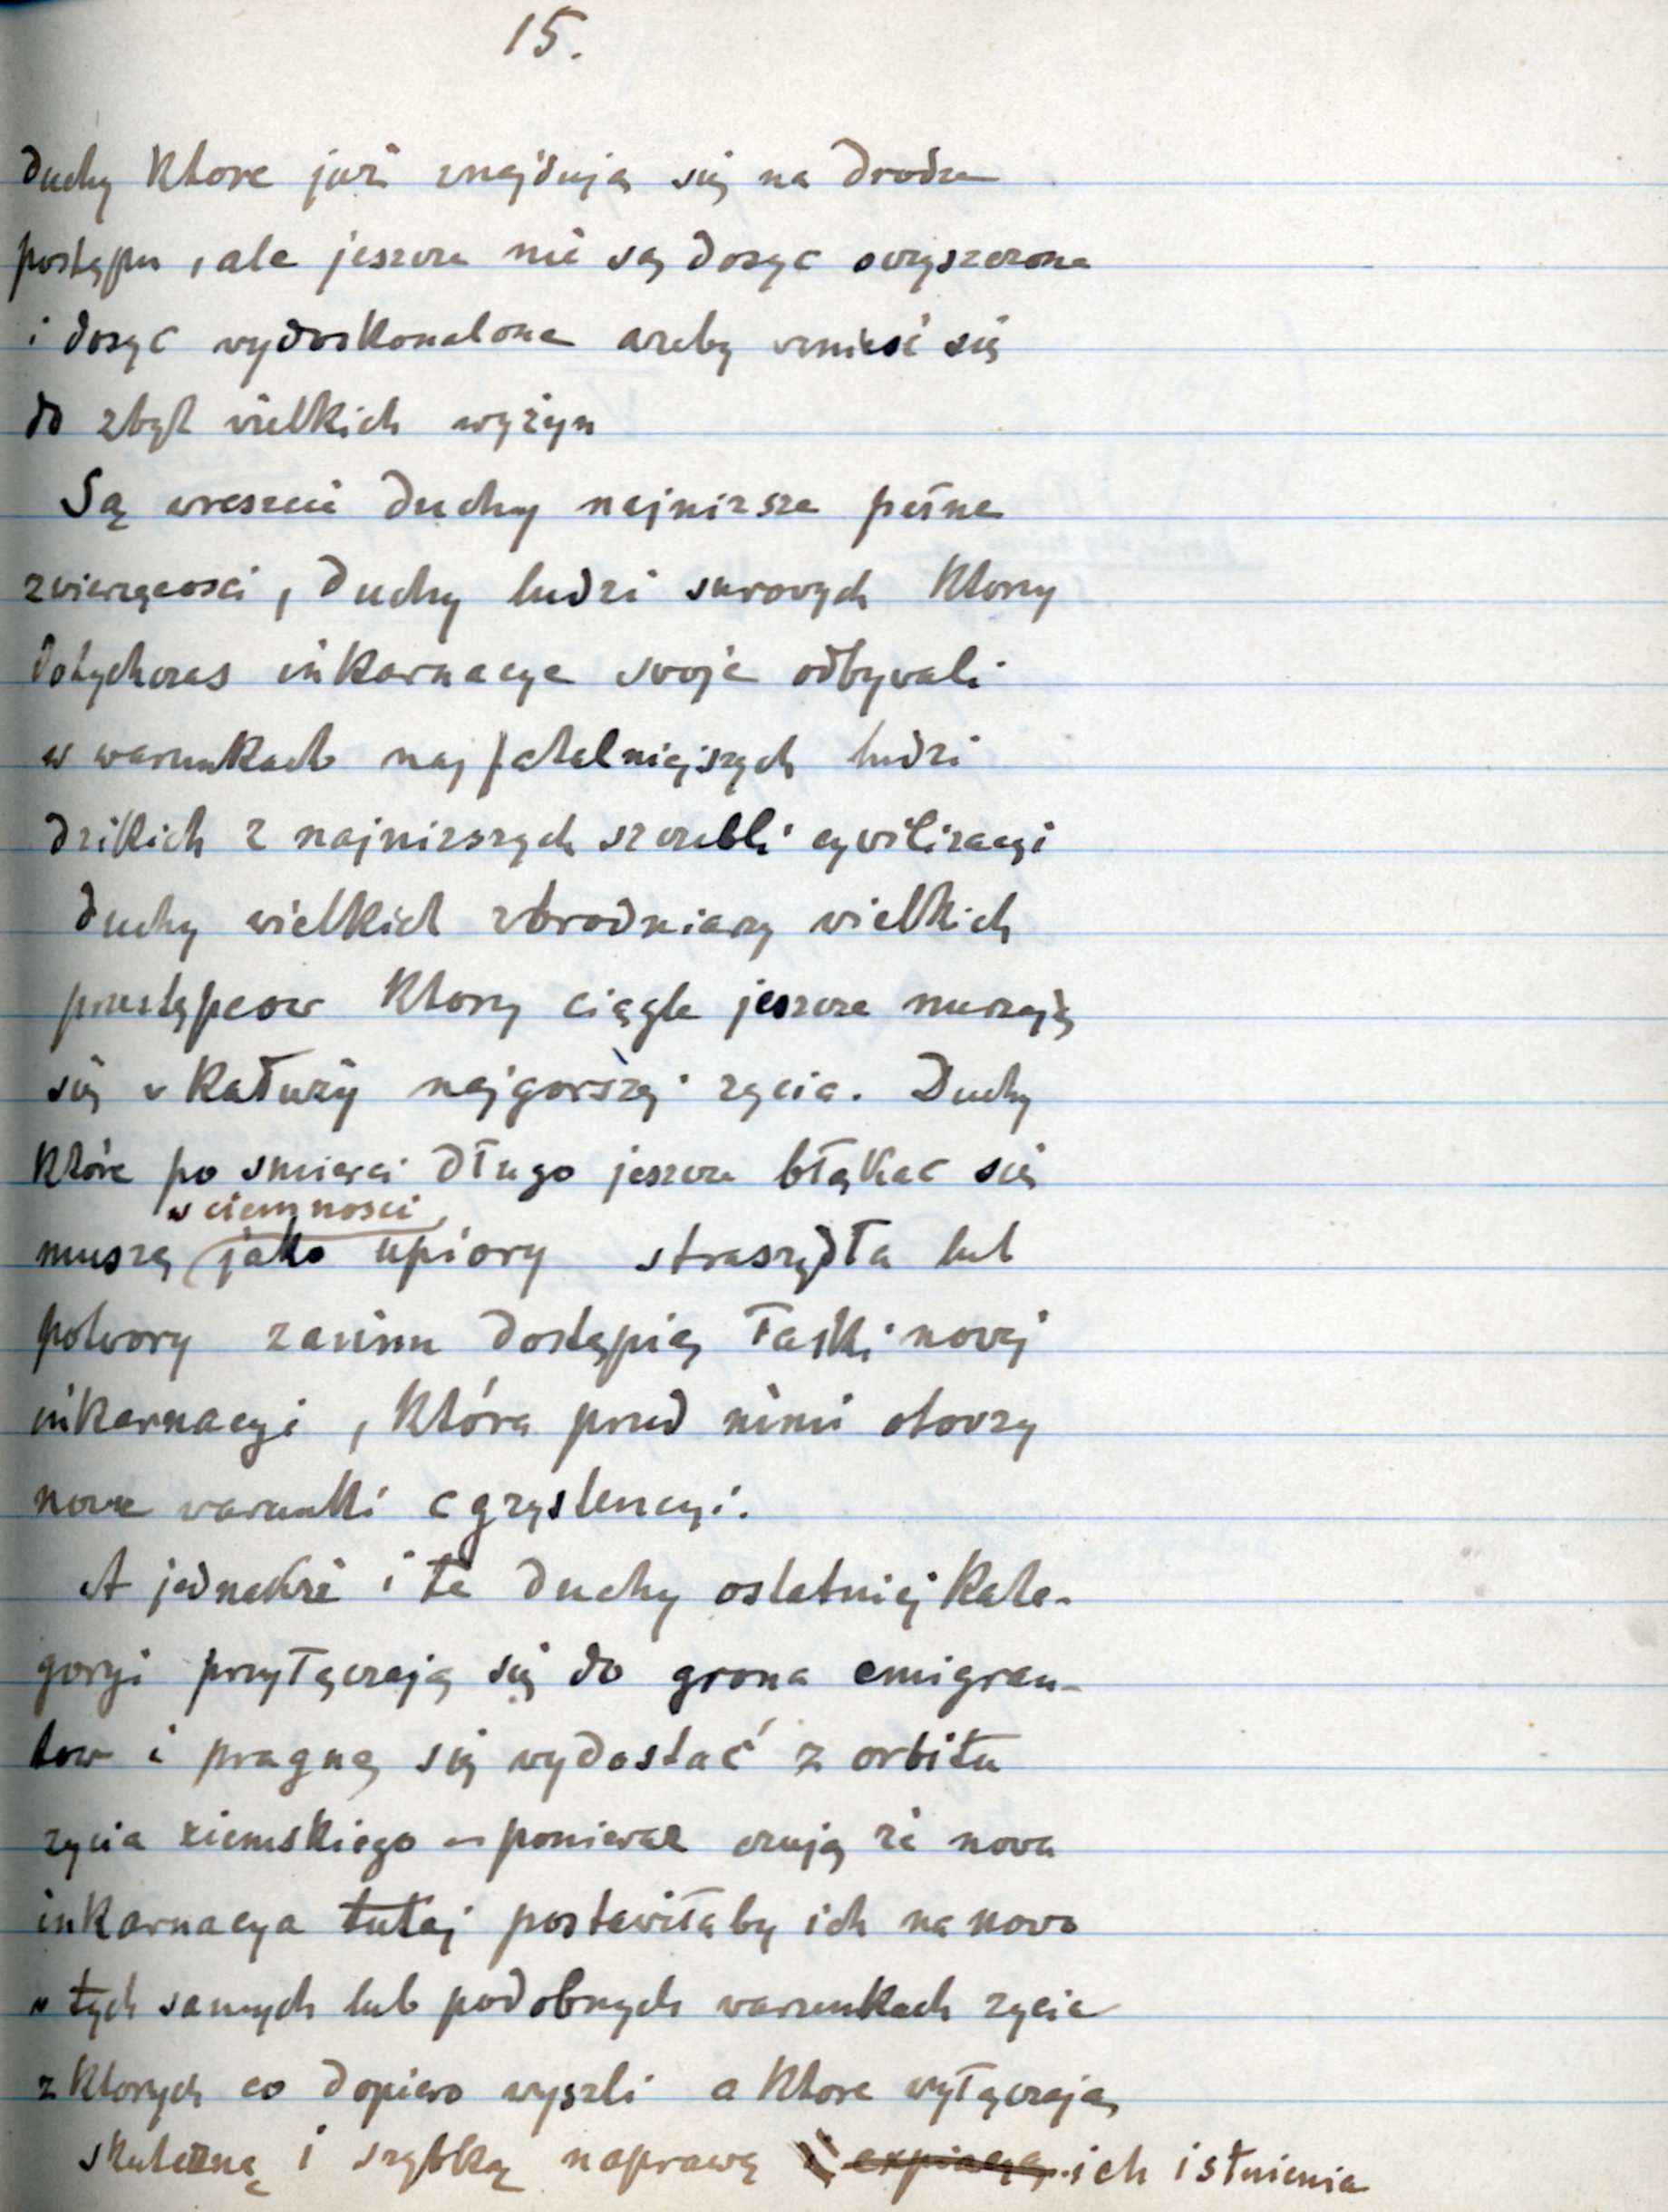 15.
duchy ktore już znajdują się na drodze
postępu, ale jeszcze nie są dosyc oczyszczone
i dosyc wydoskonalone azeby wznieść się
do zbyt wielkich wyżyn
Są wreszcie duchy najnizsze pełne
zwierzęcosci, duchy ludzi surowych ktorzy
dotychczas inkarnacye swoje odbywali
w warunkach najfatalniejszych ludzi
dzikich z najnizszych szczebli cywilizacyi
duchy wielkich zbrodniarzy wielkich
przestępcow ktorzy ciągle jeszcze nurzają
się w kałuży najgorszej zycia. Duchy
które po smierci długo jeszcze błąkac się
w ciemnosci
muszą jako upiory straszydła lub
potwory zanim dostąpią łaski nowej
inkarnacyi, która przed nimi otworzy
nowe warunki egzystencyi.
A jednakże i te duchy ostatniej kate-
goryi przyłączają się do grona emigran-
tow i pragną się wydostać z orbitu
zycia ziemskiego - poniewaz czują że nowa
inkarnacya tutaj postawiłaby ich na nowo
w tych samych lub podobnych warunkach zycia
z ktorych co dopiero wyszli a ktore wyłączają
skuteczną i szybką naprawę i expiacyę ich istnienia